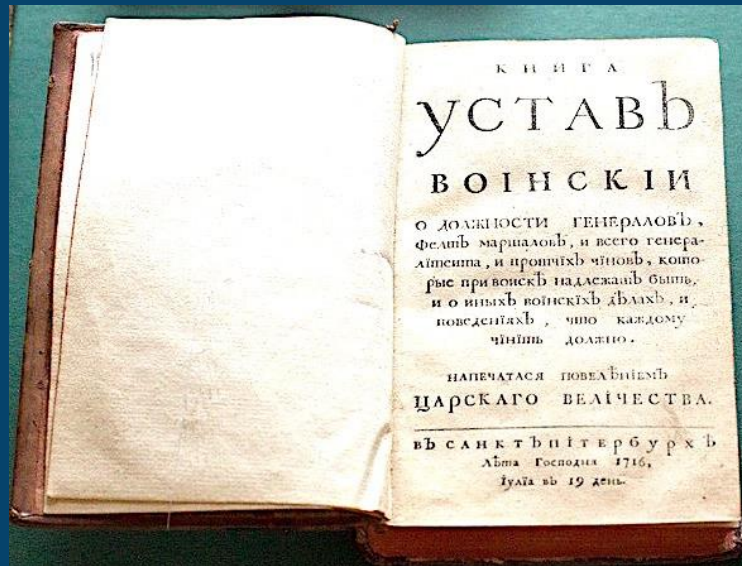 КНИГА
УСТАВЪ
ВОІНСКІИ
О ДОЛЖНОСТИ ГЕНЕРАЛОВЪ,
Фелтъ маршаловъ, и всего генера-
літеита, и протчіхъ чіновъ, кото-
рые при воискѣ надлежатъ быть,
и о иныхъ воінскіхъ дѣлахъ, и
поведеніяхъ, что каждому
чініть должно.
НАПЕЧАТАСЯ ПОВЕЛѢНІЕМЪ
ЦАРСКАГО ВЕЛІЧЕСТВА.
ВЪ САНКТЪПІТЕРБУРХѢ
Лѣта Господня 1716,
Іулїа въ 19 день.